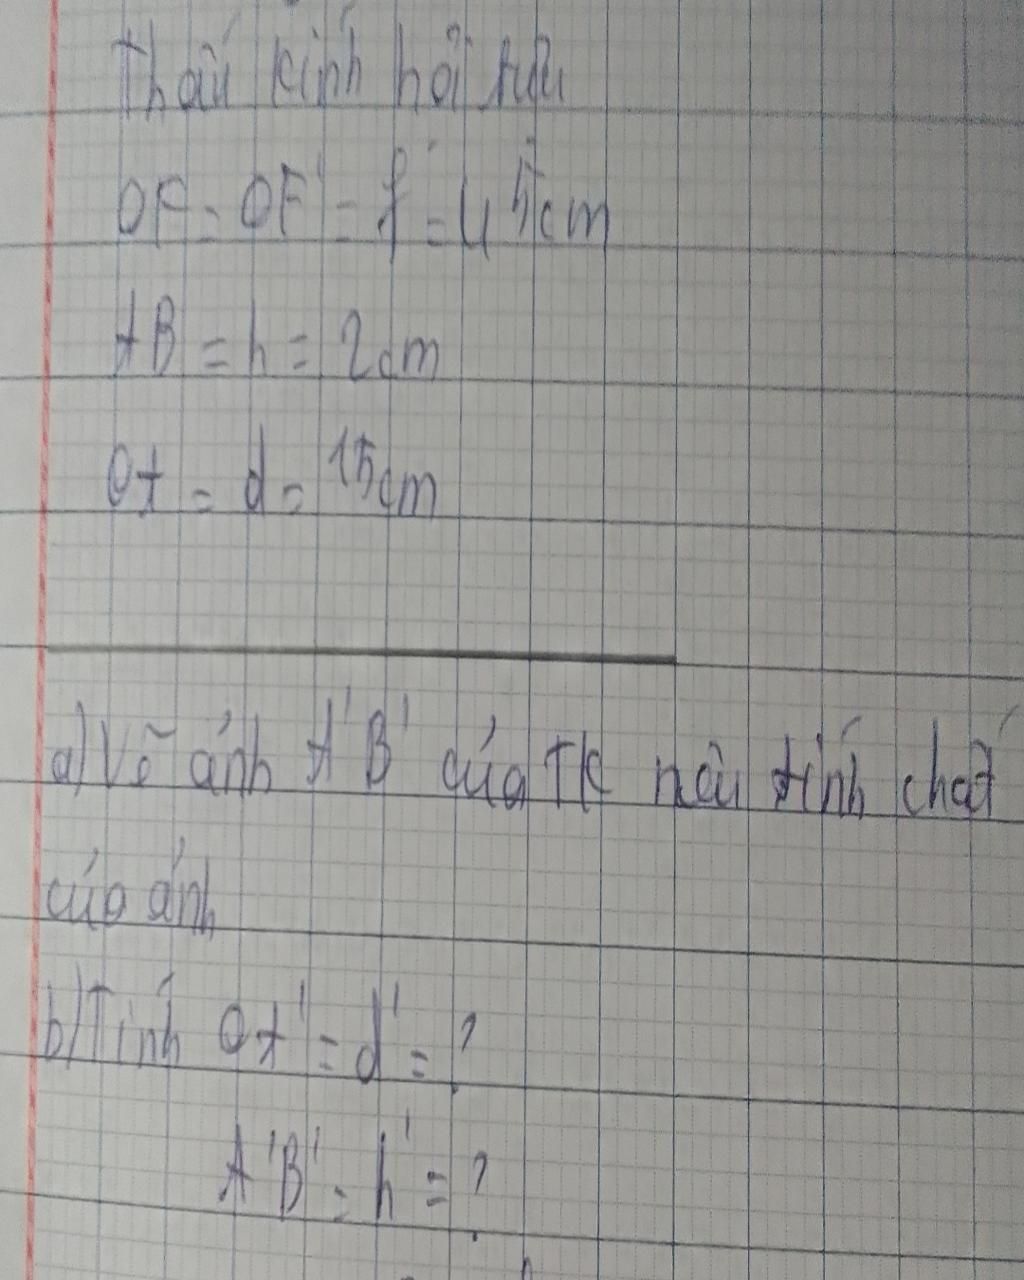 Thấu kính hội tụ
OF = OF' = f = 45cm
AB = h = 2cm
OA = d = 15cm
a) Vẽ ảnh A'B' của TK nêu tính chất
của ảnh
b) Tính OA' = d' = ?
A'B' = h' = ?